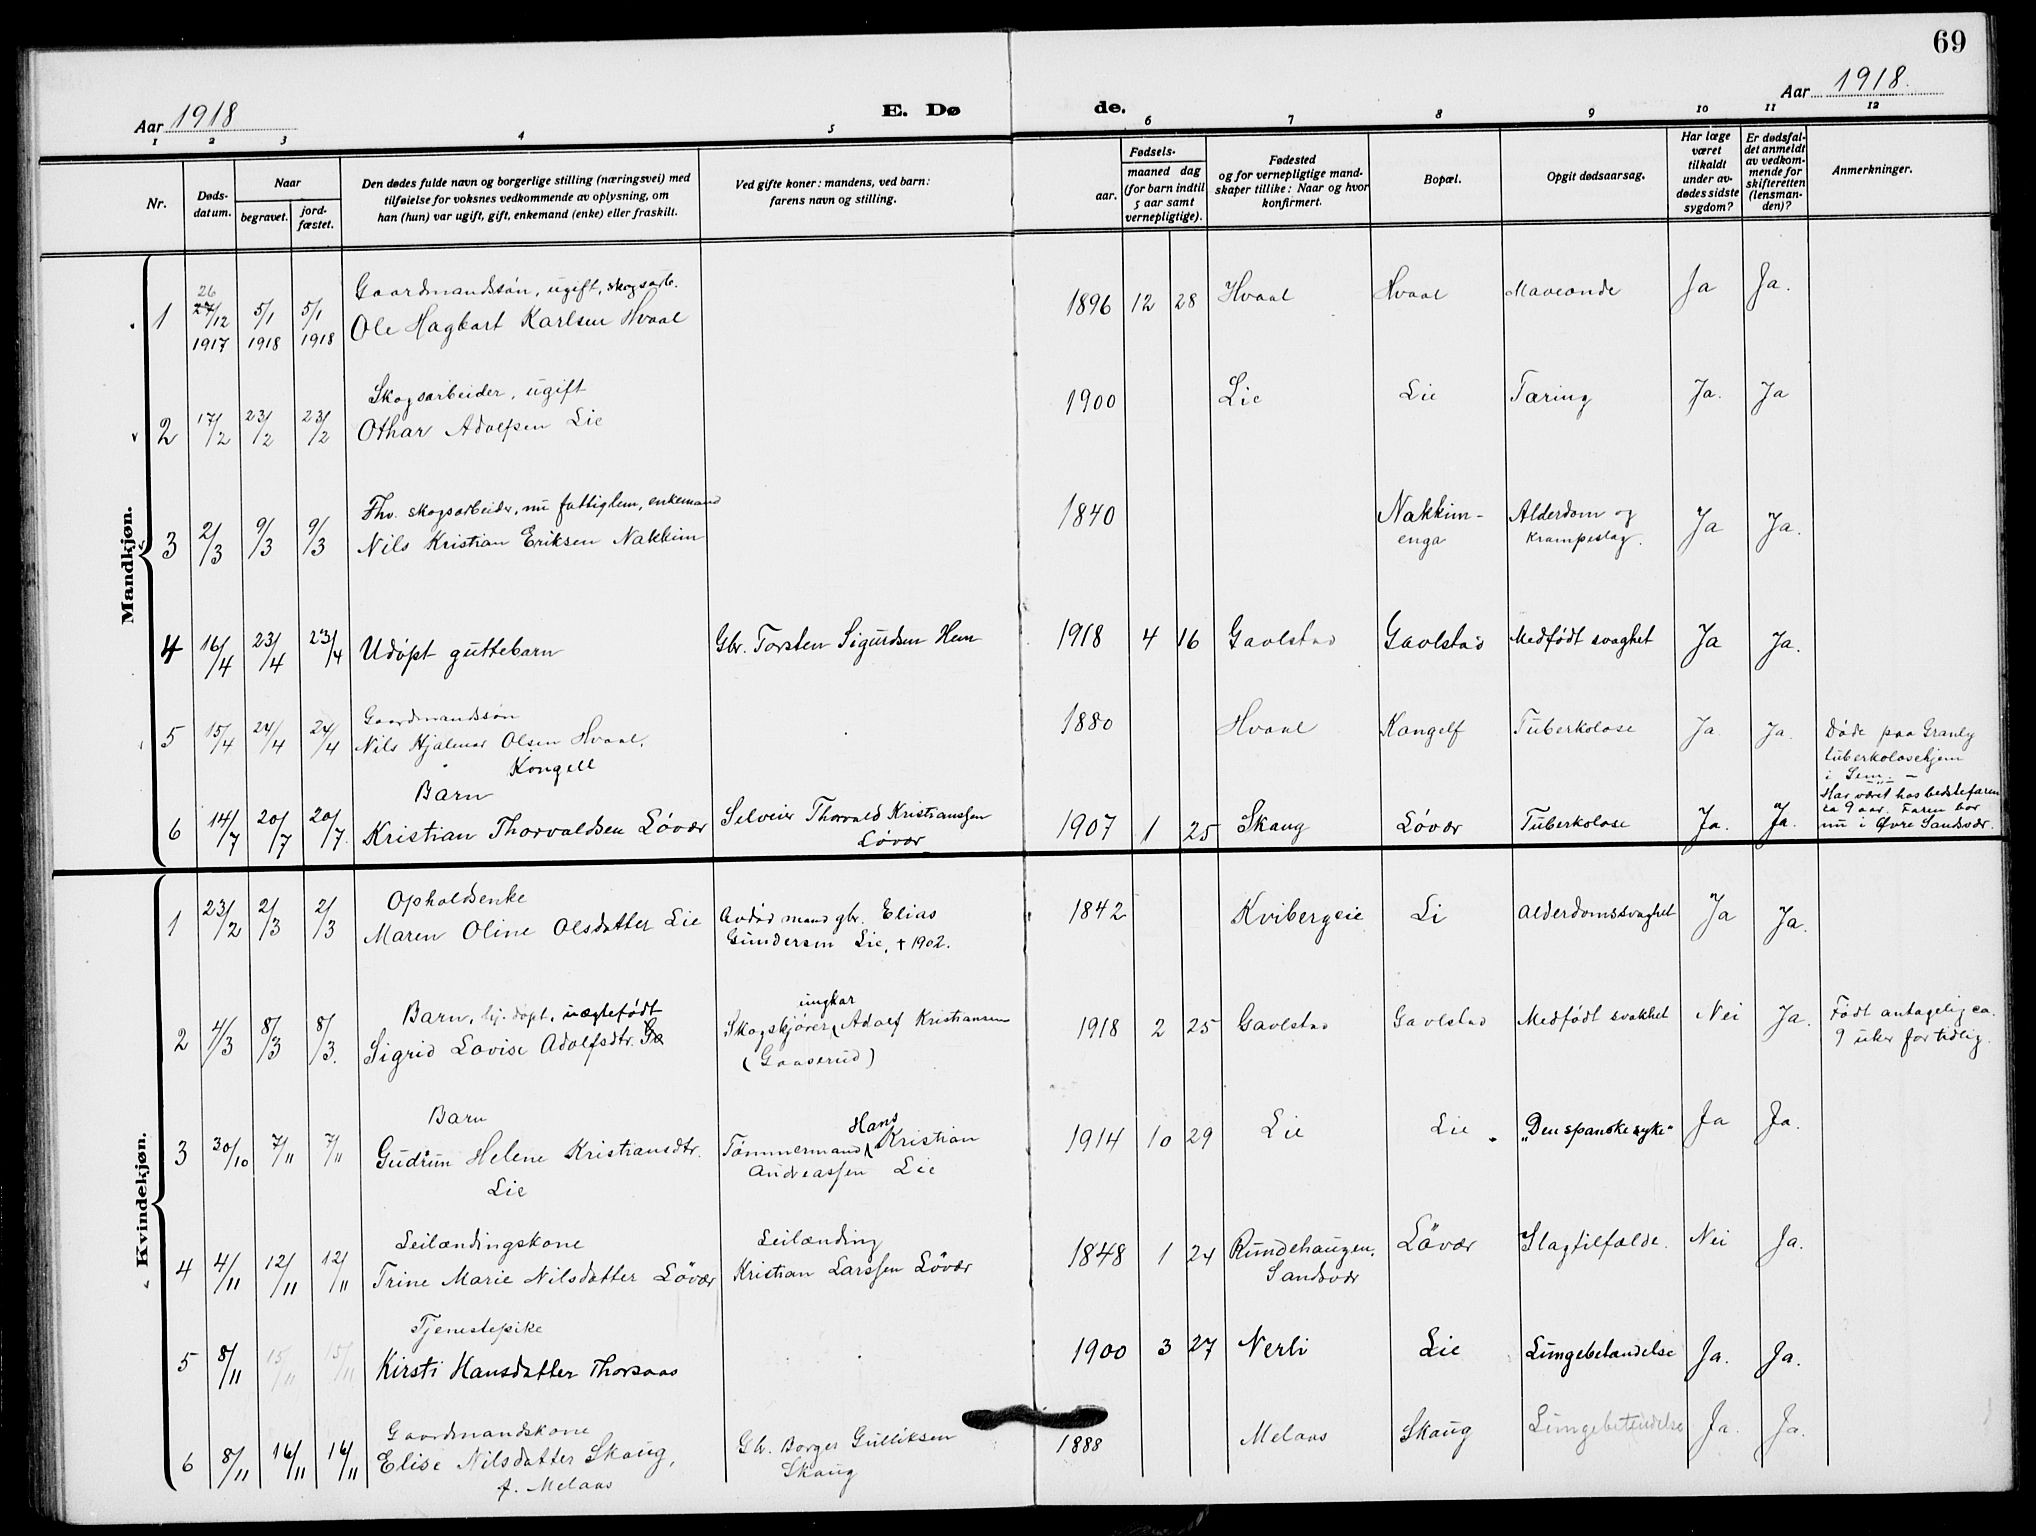 69
Aar 1918
E. Dø de.
Aar 1918.
1 2 3 4 5 6 7 8 9 10 11 12
Nr.
Døds-
datum.
Naar
begravet.
jord-
fæstet.
Den dødes fulde navn og borgerlige stilling (næringsvei) med
tilføielse for voksnes vedkommende av oplysning, om
han (hun) var ugift, gift, enkemand (enke) eller fraskilt.
Ved gifte koner: mandens, ved barn:
farens navn og stilling.
Fødsels-
aar.
maaned dag
(for barn indtil
5 aar samt
vernepligtige).
Fødested
og for vernepligtige mand-
skaper tillike: Naar og hvor
konfirmert.
Bopæl.
Opgit dødsaarsag.
Har læge
været
tilkaldt
under av-
dødes sidste
sygdom?
Er dødsfal-
det anmeldt
av vedkom-
mende for
skifteretten
(lensman-
den)?
Anmerkninger.
Mandkjøn.
Gaardmandssøn, ugift, skogsarb.
1 26 27/12 1917 5/1 1918 5/1 1918 Ole Hagbart Karlsen Hvaal 1896 12 28 Hvaal Hvaal Maveonde Ja Ja.
Skogsarbeider, ugift
2 17/2 23/2 23/2 Othar Adolfsen Lie 1900 Lie Lie Tæring Ja. Ja
Fhv. skogsarbeider, nu fattiglem, enkemand
3 2/3 9/3 9/3 Nils Kristian Eriksen Nakkim 1840 Nakkim-
enga Alderdom og
Krampeslag. Ja Ja.
4 16/4 23/4 23/4 Udøpt guttebarn Gbr. Torsten Sigurdsen Hem 1918 4 16 Gavlstad Gavlstad Medfødt svaghet Ja Ja.
Gaardmandssøn
5 15/4 24/4 24/4 Nils Hjalmar Olsen Hvaal,
Kongell 1880 Hvaal Kongelf Tuberkolose Ja Ja. Døde paa Granly
tuberkolosehjem
i Sem. –
Barn
6 14/7 20/7 20/7. Kristian Thorvaldsen Løvær Selveier Thorvald Kristianssen
Løvær 1907 1 25 Skaug Løvær Tuberkolose Ja. Ja. Har været hos bedstefaren
ca 9 aar, Faren bor
nu i Øvre Sandsvær.
Kvindekjøn.
Opholdsenke
1 23/2 2/3 2/3 Maren Oline Olsdatter Lie Avdød mand gbr. Elias
Gundersen Lie, † 1902. 1842 Kvibergeie Li Alderdomssvaghet Ja Ja.
Barn, hj. døpt, uægtefødt
2 4/3 8/3 8/3. Sigrid Lovise Adolfsdtr. Skogskjører ungkar Adolf Kristiansen
(Gaaserud) 1918 2 25 Gavlstad Gavlstad Medfødt svakhet Nei Ja. Født antagelig ca.
9 uker for tidlig.
Barn
3 30/10 7/11 7/11 Gudrun Helene Kristiansdtr.
Lie Tømmermand Hans Kristian
Andreassen Lie 1914 10 29 Lie Lie „Den spanske syke“ Ja Ja.
Leilændingskone
4 4/11 12/11 12/11 Trine Marie Nilsdatter Løvær Leilænding
Kristian Larssen Løvær 1848 1 24 Rundehaugen,
Sandsvær Løvær Slagtilfælde. Nei Ja.
Tjenestepike
5 8/11 15/11 15/11 Kirsti Hansdatter Thorsaas 1900 3 27 Nerli Lie Lungebetændelse Ja. Ja.
Gaardmandskone
6 8/11 16/11 16/11 Elise Nilsdatter Skaug,
f. Melaas Gb. Borger Gulliksen
Skaug 1888 Melaas Skaug Lungebetændelse Ja. Ja.